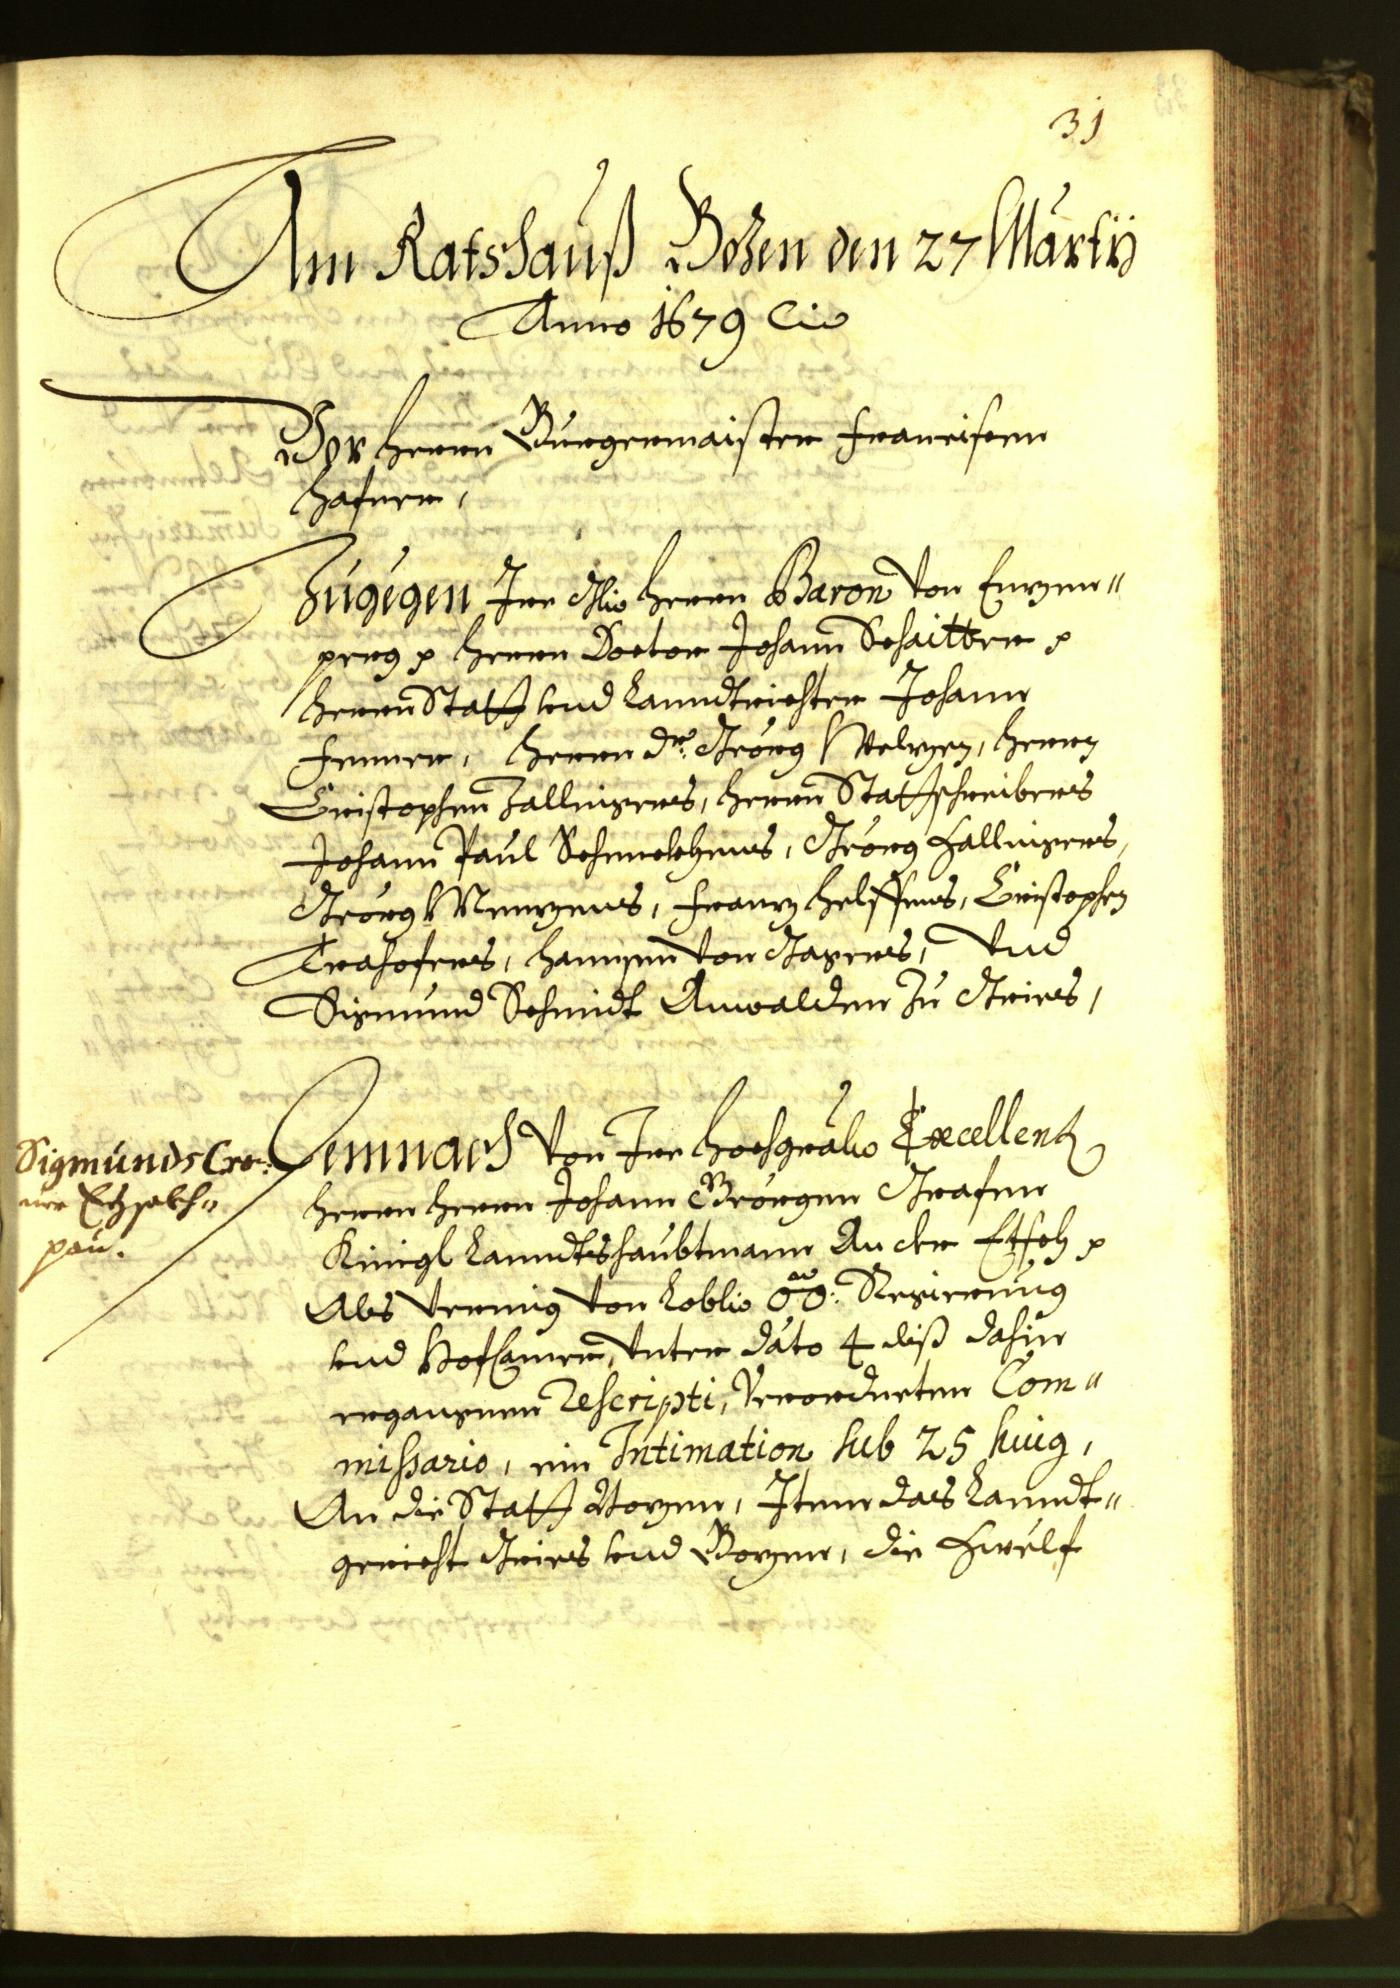 31
Am Ratshauß Bozen den 27 Martij
Anno 1679 etc
Vor herrn Burgermaister Francißen
hafner,
Zugegen Ir Gn: herrn Baron von Enzen=
perg etc herrn Doctor Johann Schaitter etc
herrn Statt und Lanndtrichter Johann
Fenner, herrn Dr: Geörg Welzer, herrn
Cristophen Zallingers, herrn Stattschreibers
Johann Paul Schmelchers, Geörg Zallingers,
Geörg Menzens, Franz helffers, Cristophen
Trahofers, hannsen von Gagers, und
Sigmund Schmidt Anwalden zu Gries,
Sigmunds Cro=
ner Etschpach=
pau.
Demnach von Ir hochgräfl: Excellenz
herrn herrn Johann Geörgen Grafen
Künigl Lanndtshaubtmann An der Etsch etc
Als crafft von Loblic OÖ: Regierung
und Hofcamer, unter dato 4 diß dahin
ergangnen Rescripti, Verordneten Com=
missario, ein Intimation sub 25 huig,
An die Statt Bozen, Item das Lanndt=
gericht Gries und Bozen, die Zwelf